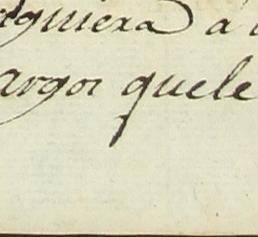 quiera á
argos quele